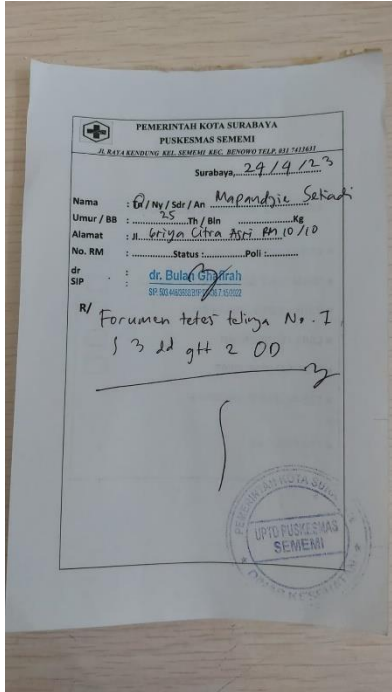 PEMERINTAH KOTA SURABAYA
PUSKESMAS SEMEMI
JL. RAYA KENDUNG KEL. SEMEMI KEC. BENOWO TELP. 031 7413631
Surabaya, 24/4/23
Nama : Tn / Ny / Sdr / An Mapandjie Setiadi
Umur / BB : 25 Th / Bln Kg
Alamat : Jl. Griya Citra Asri RM 10/10
No. RM : Status : Poli :
dr : dr. Bulan Ghafirah
SIP :
R/ Forumen tetes telinga No. I
S 3 dd gtt 2 OD
PEMERINTAH KOTA SURABAYA
UPTD PUSKESMAS
SEMEMI
DINAS KESEHATAN